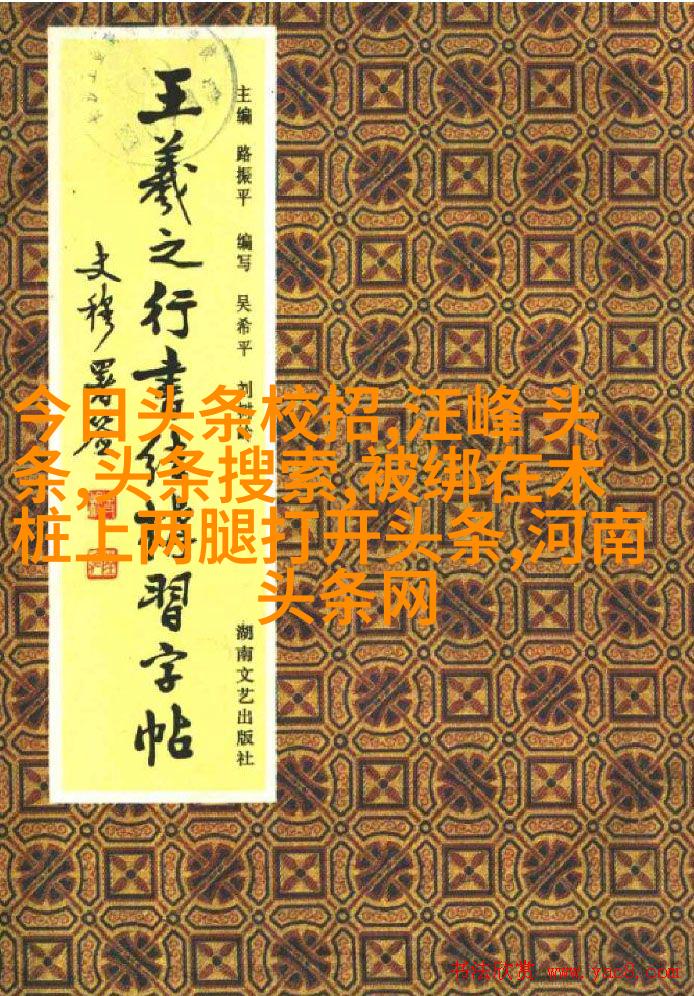 主编 路振平 编写 吴希平 刘
王羲之行書结被習字帖
史穆署签
湖南文艺出版社
今日头条校招,汪峰 头
条,头条搜索,被绑在木
桩上两腿打开头条,河南
头条网
书法欣赏 www.yac8.com